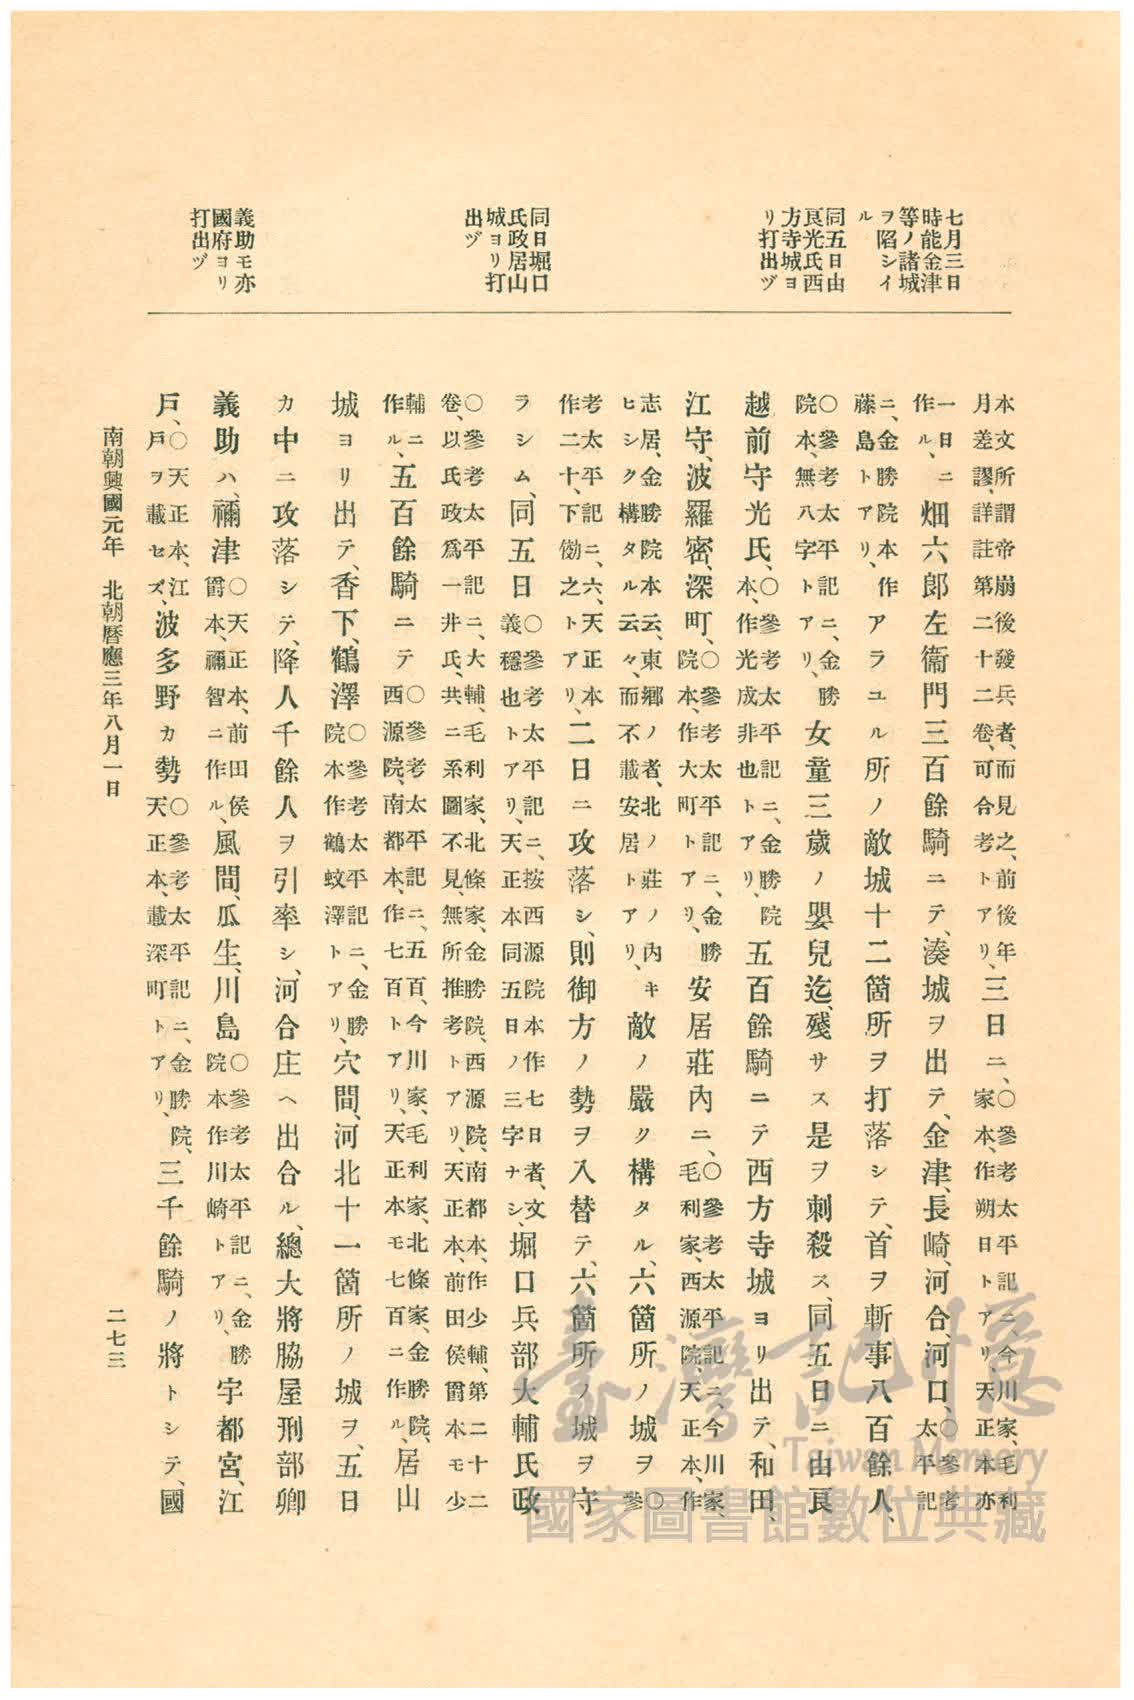 七月三日
時能金津
等ノ諸城
ヲ陷シイ
ル
同五日由
良光氏西
方寺城ヨ
リ打出ヅ
同日堀口
氏政居山
城ヨリ打
出ヅ
義助モ亦
國府ヨリ
打出ヅ
本文所謂帝崩後發兵者、而見之、前後年
月差謬、詳註第二十二卷、可合考トアリ、三日ニ、〇參考太平記ニ、今川家、毛利
家本、作朔日トアリ、天正本亦
一日ニ
作ル、畑六郎左衞門三百餘騎ニテ、湊城ヲ出テ、金津、長崎、河合、河口、〇參考
太平記
ニ、金勝院本作
藤島トアリ、アラユル所ノ敵城十二箇所ヲ打落シテ、首ヲ斬事八百餘人、
〇參考太平記ニ、金勝
院本、無八字トアリ、女童三歲ノ嬰兒迄、殘サス是ヲ刺殺ス、同五日ニ由良
越前守光氏、〇參考太平記ニ、金勝院
本、作光成非也トアリ、五百餘騎ニテ西方寺城ヨリ出テ、和田、
江守、波羅密、深町、〇參考太平記ニ、金勝
院本、作大町トアリ、安居莊內ニ、〇參考太平記ニ、今川家、
毛利家、西源院、天正本、作
志居、金勝院本云、東鄕ノ者、北ノ莊ノ內、キ
ヒシク構タル云々、而不載安居トアリ、敵ノ嚴クク構タル、六箇所ノ城ヲ〇參
考太平記ニ、六、天正本
作二十、下倣之トアリ、二日ニ攻落シ、則御方ノ勢ヲ入替テ、六箇所ノ城ヲ守
ラシム、同五日〇參考太平記ニ、按西源院本作七日者、文
義穩也トアリ、天正本同五日ノ三字ナシ、堀口兵部大輔氏政
〇參考太平記ニ、大輔、毛利家、北條家、金勝院、西源院、南都本、作少輔、第二十二
卷、以氏政爲一井氏、共ニ系圖不見、無所推考トアリ、天正本、前田侯爵本モ少
輔ニ
作ル、五百餘騎ニテ〇參考太平記ニ、五百、今川家、毛利家、北條家、金勝院、
西源院、南都本、作七百トアリ、天正本モ七百ニ作ル、居山
城ヨリ出テ、香下、鶴澤〇參考太平記ニ、金勝
院本作鶴蚊澤トアリ、穴間、河北十一箇所ノ城ヲ、五日
カ中ニ攻落シテ、降人千餘人ヲ引率シ、河合庄ヘ出合ル、總大將脇屋刑部卿
義助ハ、禰津〇天正本、前田侯
爵本、禰智ニ作ル、風間、瓜生、川島〇參考太平記ニ、金勝
院本作川崎トアリ、宇都宮、江
戶、〇天正本、江
戶ヲ載セズ、波多野カ勢〇參考太平記ニ、金勝院、
天正本、載深町トアリ、三千餘騎ノ將トシテ、國
南朝興國元年　北朝曆應三年八月一日
二七三
臺灣記憶
Taiwan Memory
國家圖書館數位典藏